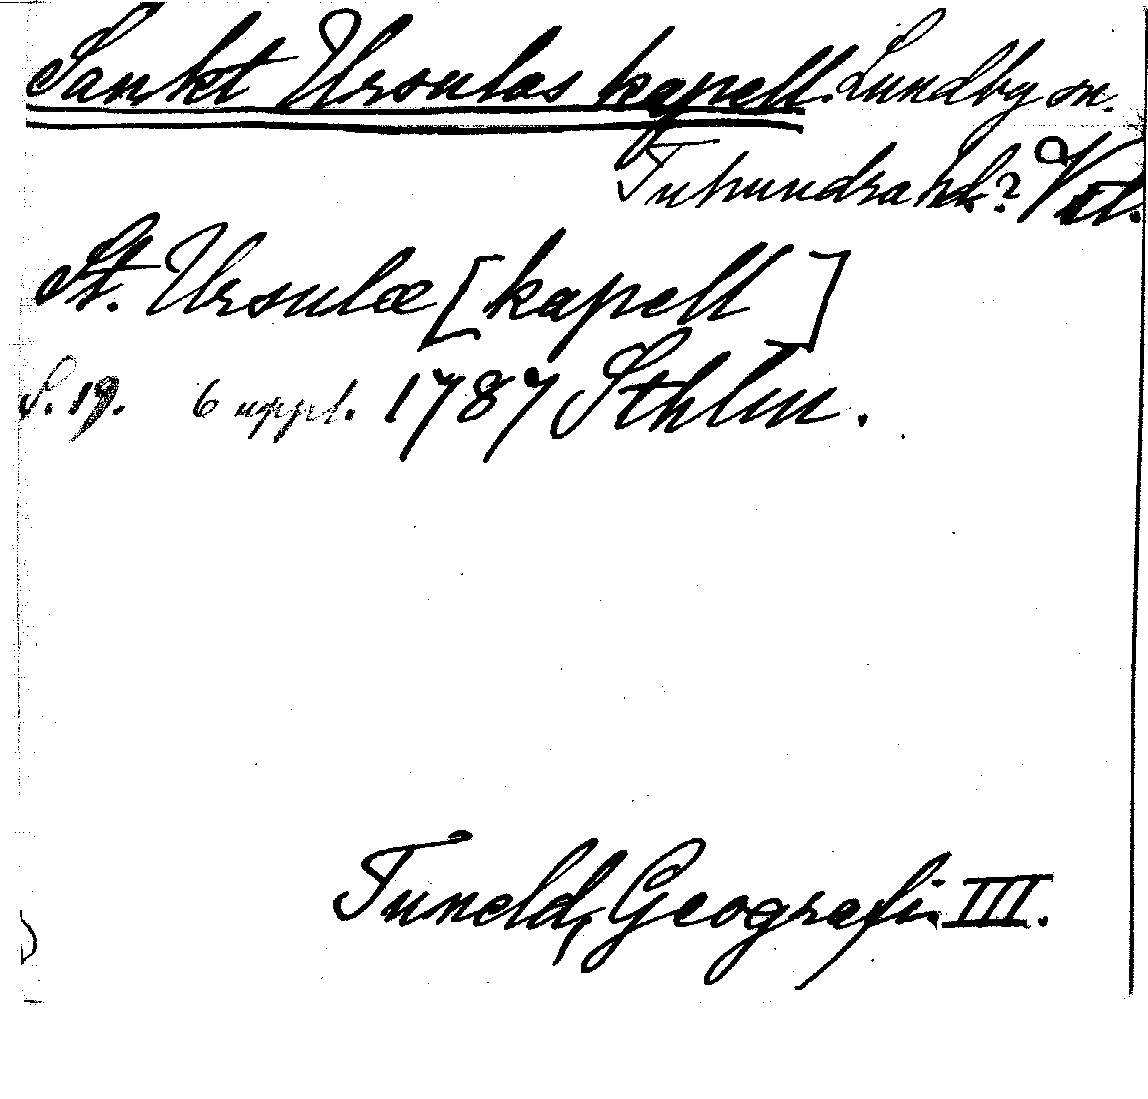 Sankt Ursulas kapell. Lundby sn.
Tuhundra hd.? Vstl.
St. Ursulæ [kapell]
S. 19. 6 uppl. 1787 Sthlm.
Tuneld, Geografi. III.